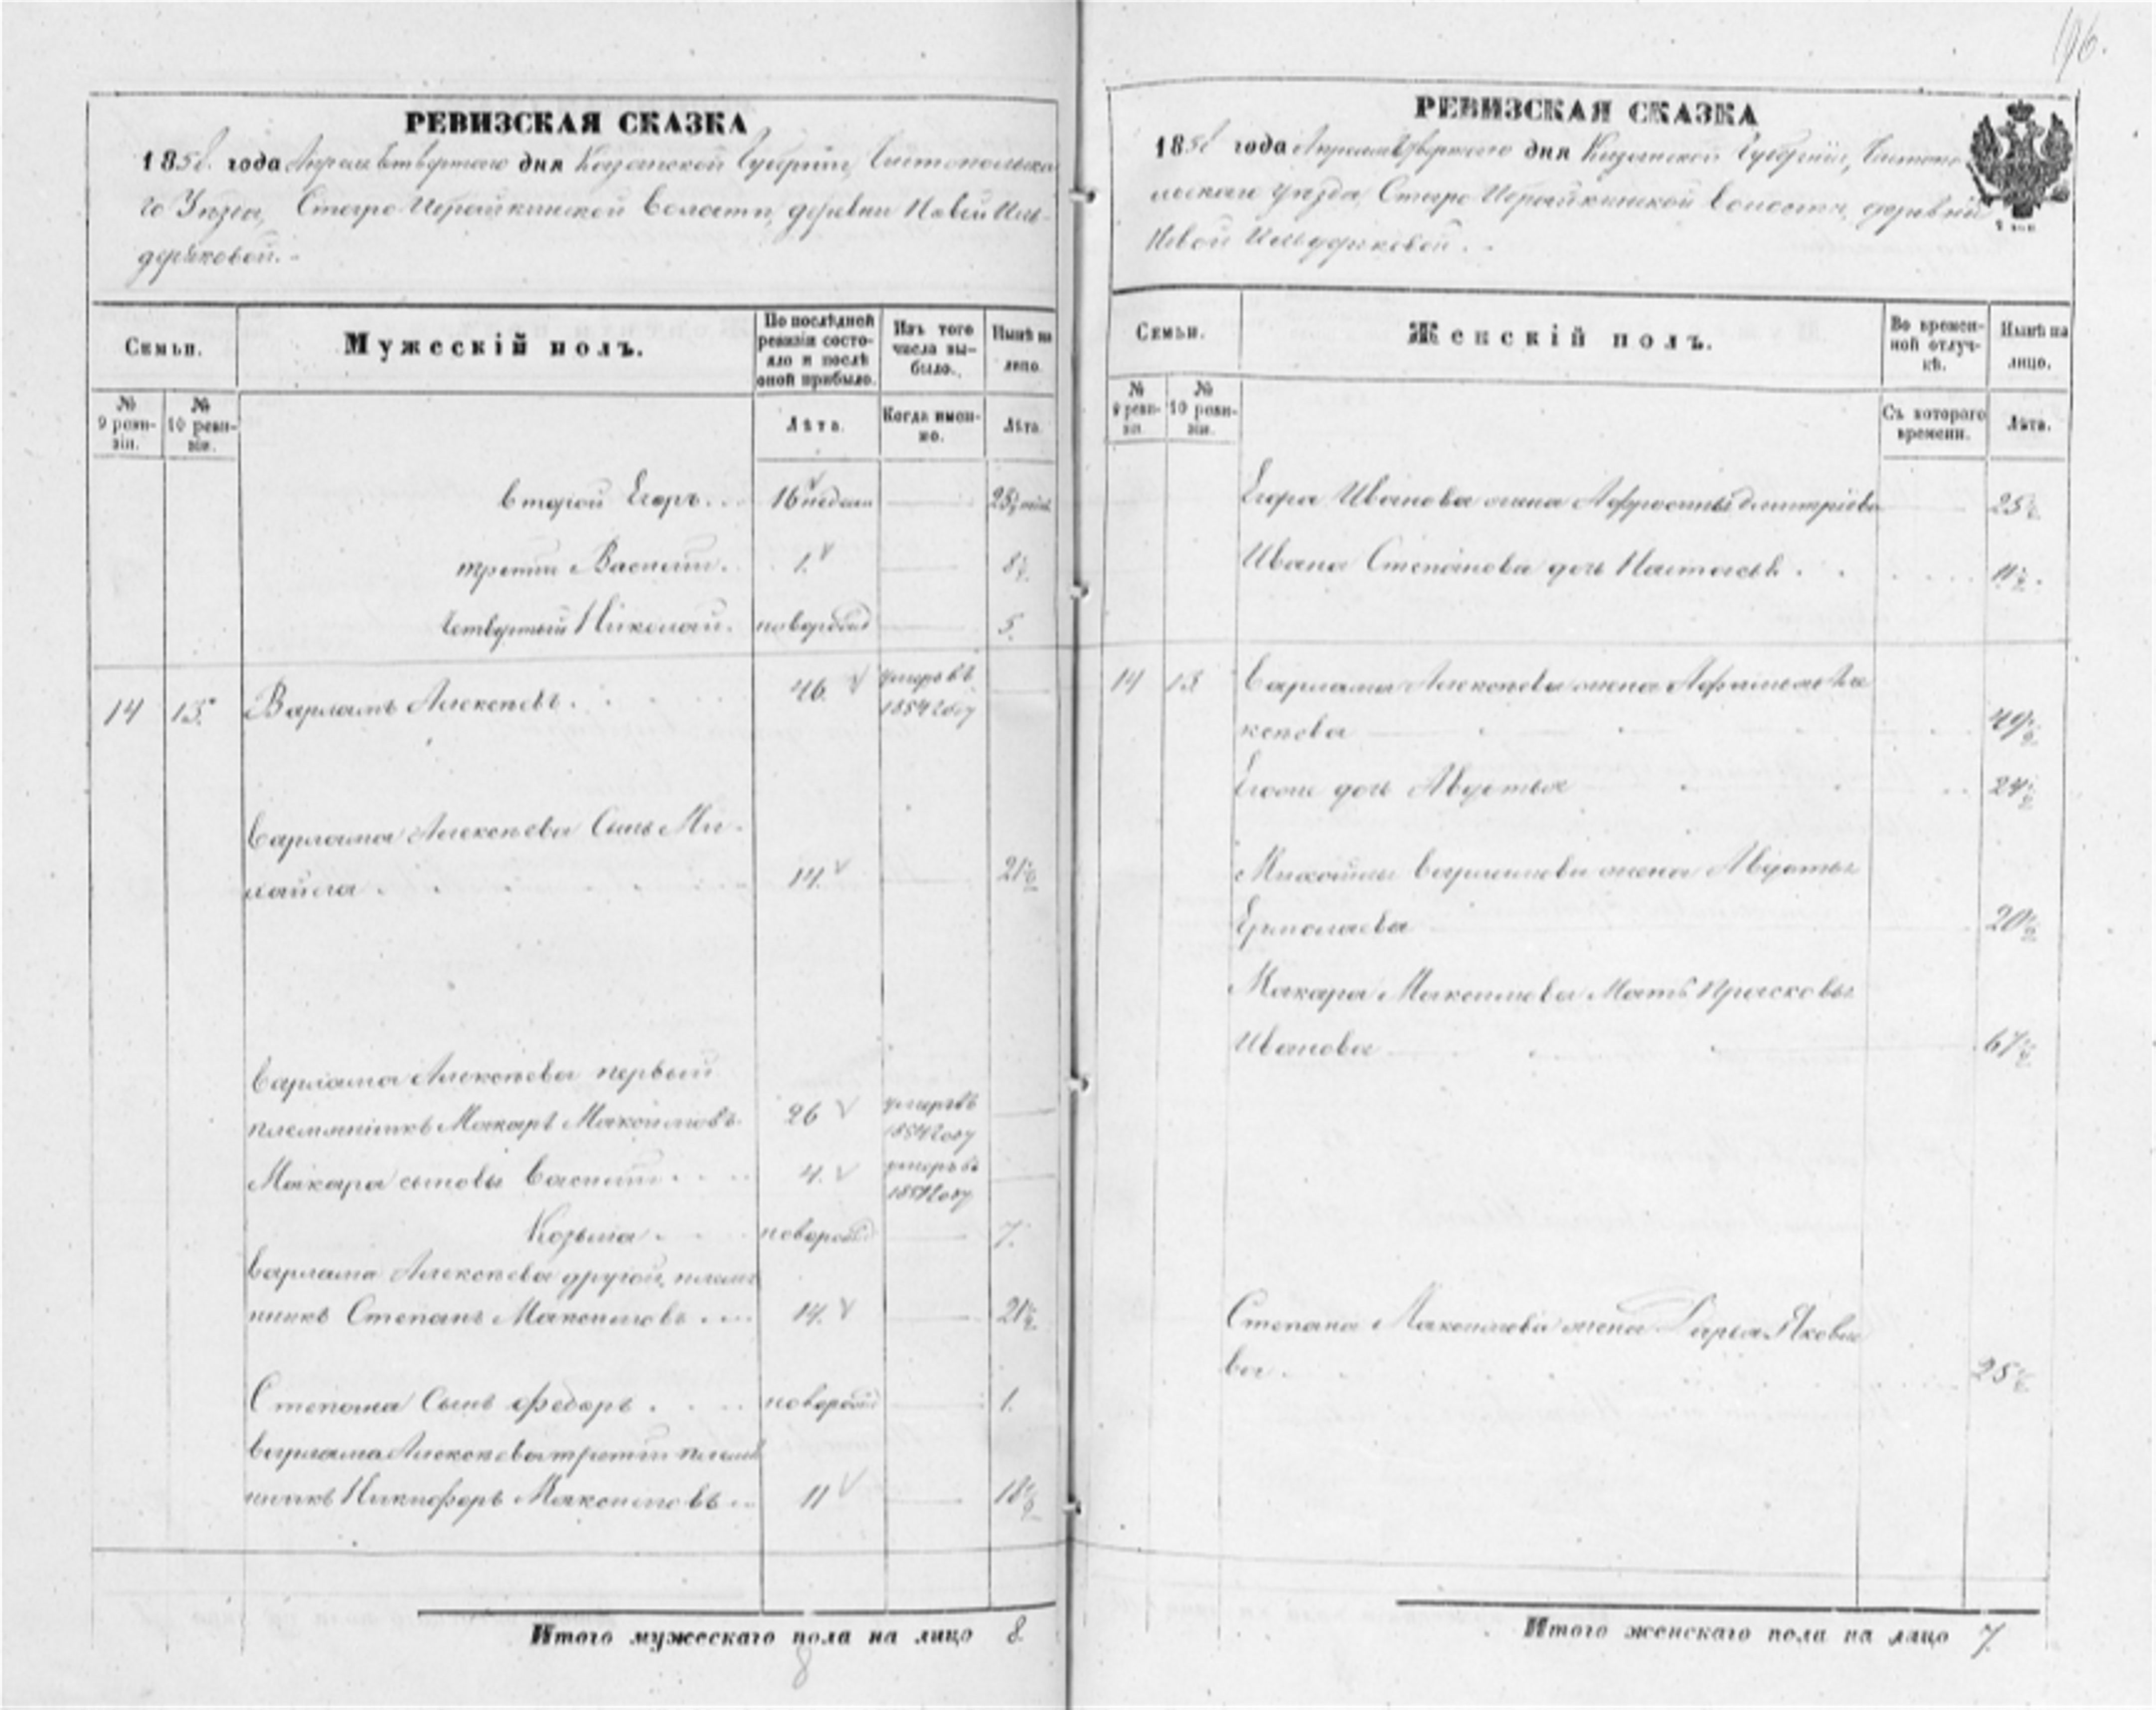 196.
РЕВИЗСКАЯ СКАЗКА
1858 года Апреля четвертаго дня Казанской Губернiи, Чистопольска-
го Уезда, Старо-Ибрайкинской волости, деревни Новой Иль-
деряковой.
Семьи.
Мужескiй полъ.
По последней ревизiи состояло и после оной прибыло.
Изъ того числа выбыло.
Ныне на лицо.
№ 9 ревизiи.
№ 10 ревизiи.
Лета.
Когда именно.
Лета.
второй Егоръ. 16 недель 25½
третiй Василiй. 1. 8½
четвертый Николай. новорожд 5.
14 13. Варламъ Алексеевъ. 46. умеръ въ 1854 году
Варлама Алексеева сынъ Ми-
хайла 14. 21½
Варлама Алексеева первый
племянникъ Макаръ Максимовъ 26 умеръ въ 1854 году
Макара сыновья Василiй 4. умеръ въ году
Козьма новорожд 7.
Варлама Алексеева другой племян
никъ Степанъ Максимовъ 14. 21½
Степана сынъ Федоръ новорожд 1.
Варлама Алексеева третiй племян
никъ Никифоръ Максимовъ 11 18½
Итого мужескаго пола на лицо 8
8
РЕВИЗСКАЯ СКАЗКА
1858 года Апреля четвертаго дня Казанской Губернiи, Чистопо-
льскаго уезда, Старо-Ибрайкинской волости, деревни
Новой Ильдеряковой.
Семьи.
Женскiй полъ.
Во временной отлучке.
Ныне на лицо.
№ 9 ревизiи.
№ 10 ревизiи.
Съ котораго времени.
Лета.
Егора Иванова жена Афросинья Дмитрiева 25½
Ивана Степанова дочь Настасья 11½.
14 13 Варлама Алексеева жена Але
ксеева 49½
Егоже дочь Авдотья 24½
Михайлы Варламова жена Авдотья
Ермолаева 20½
Макара Максимова мать Прасковья
Иванова 67½
Степана Максимова жена Дарья Яковле
ва. 25½
Итого женскаго пола на лицо 7.